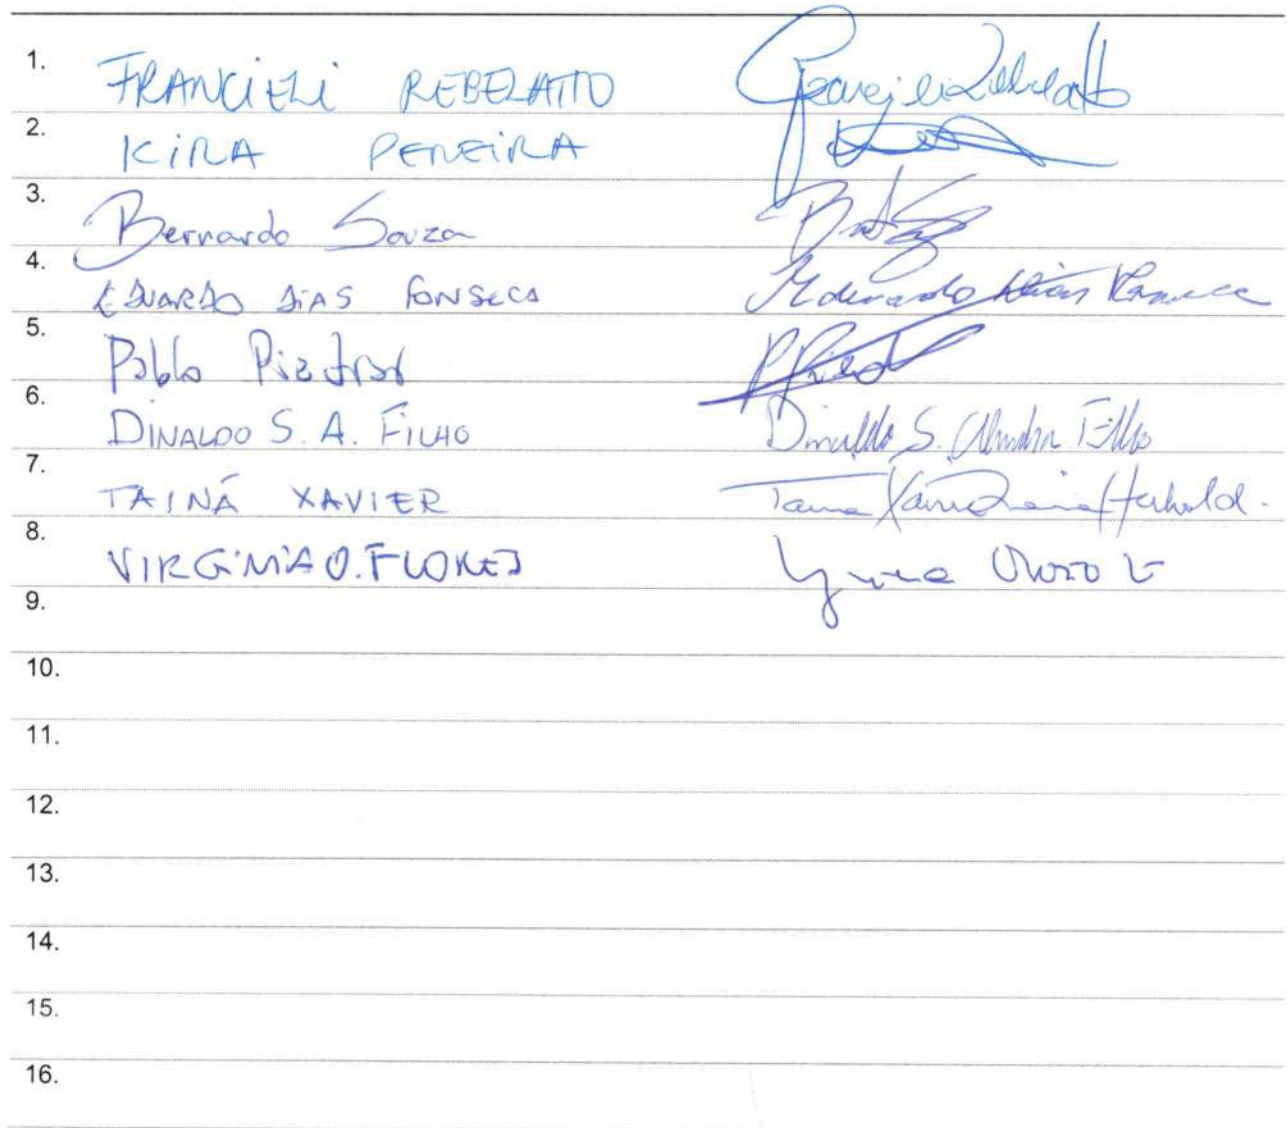 1. FRANCIELI REBELATTO
2. KIRA PEREIRA
3. Bernardo Souza
4. EDUARDO DIAS FONSECA Eduardo Dias Fonseca
5. Pablo Piedras
6. DINALDO S. A. FILHO Dinaldo S. Almeida Filho
7. TAINÁ XAVIER
8. VIRGINIA O. FLORES
9.
10.
11.
12.
13.
14.
15.
16.